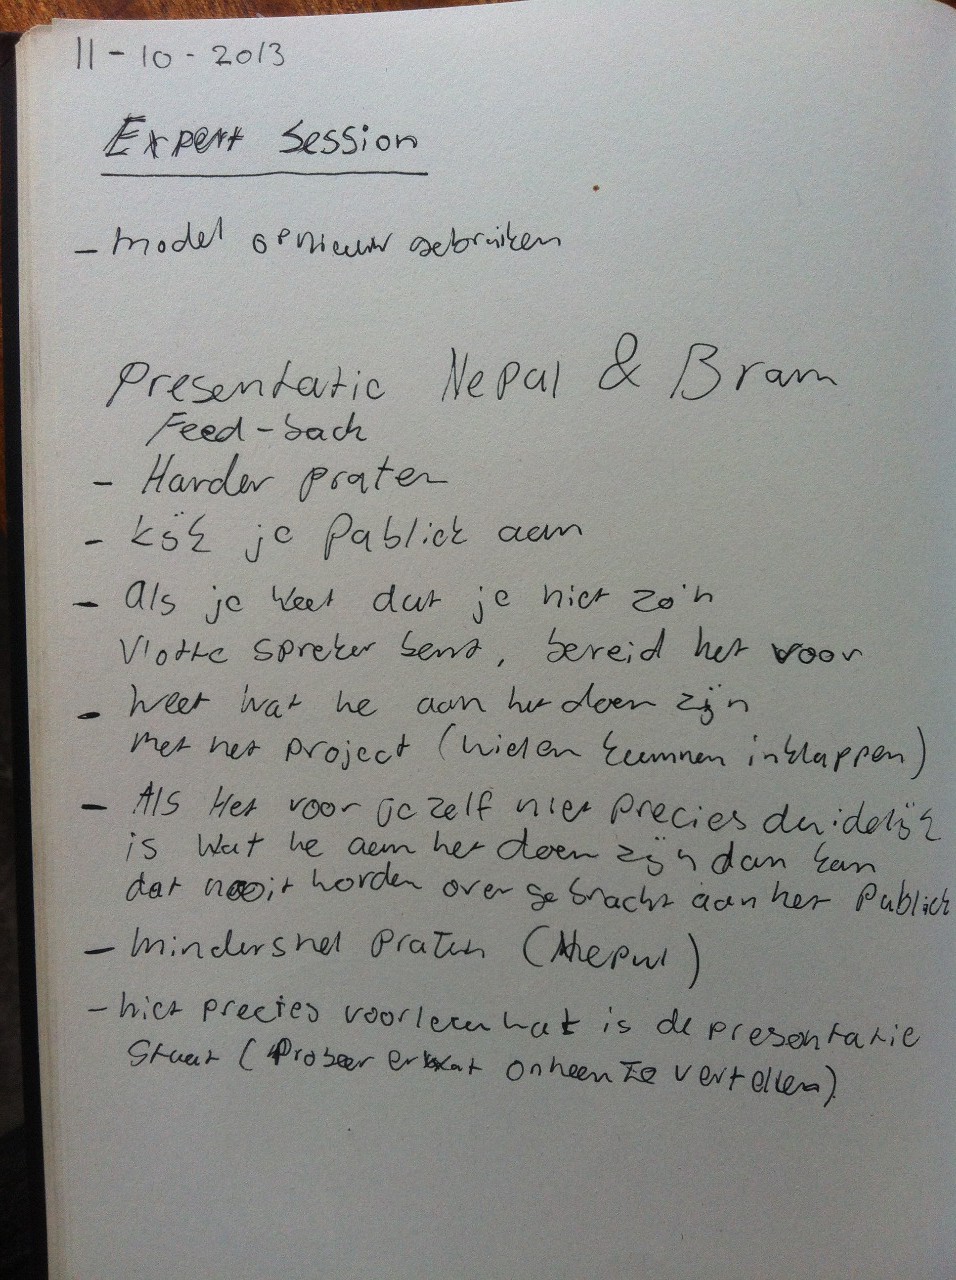 11-10-2013
Expert Session
- model opnieuw gebruiken
Presentatie Nepal & Bram
Feed-back
- Harder praten
- Kijk je Publiek aan
- Als je weet dat je niet zo'n
Vlotte spreker bent, bereid het voor
- Weet wat we aan het doen zijn
met het project (wielen kunnen inklappen)
- Als Het voor je zelf niet Precies duidelijk
is wat we aan het doen zijn dan kan
dat nooit worden over gebracht aan het Publiek
- minder snel Praten (Nepal)
- niet precies voorlezen wat is de presentatie
Staat (Probeer er wat omheen te vertellen)